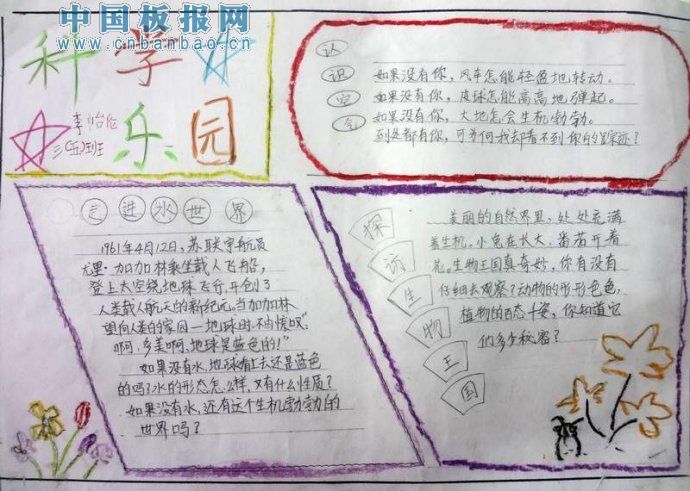 中国板报网
www.cnbanbao.cn
科学
乐园
李怡伦
三(五)班
认识空气
如果没有你，风车怎能轻盈地转动。
如果没有你，皮球怎能高高地弹起。
如果没有你，大地怎会生机勃勃。
到处都有你，可为何我却看不到你的踪迹？
走进水世界
1961年4月12日，苏联宇航员
尤里·加加林乘坐载人飞船，
登上太空绕地球飞行，开创了
人类载人航天的新纪元。当加加林
望向人类的家园一地球时，不由惊叹：“
啊，多美啊，地球是蓝色的！”
如果没有水，地球看上去还是蓝色
的吗？水的形态怎么样，又有什么性质？
如果没有水，还有这个生机勃勃的
世界吗？
探访生物王国
美丽的自然界里，处处充满
着生机。小兔在长大，番茄开着
花。生物王国真奇妙，你有没有
仔细去观察？动物的形形色色，
植物的百态千姿，你知道它
们多少秘密？